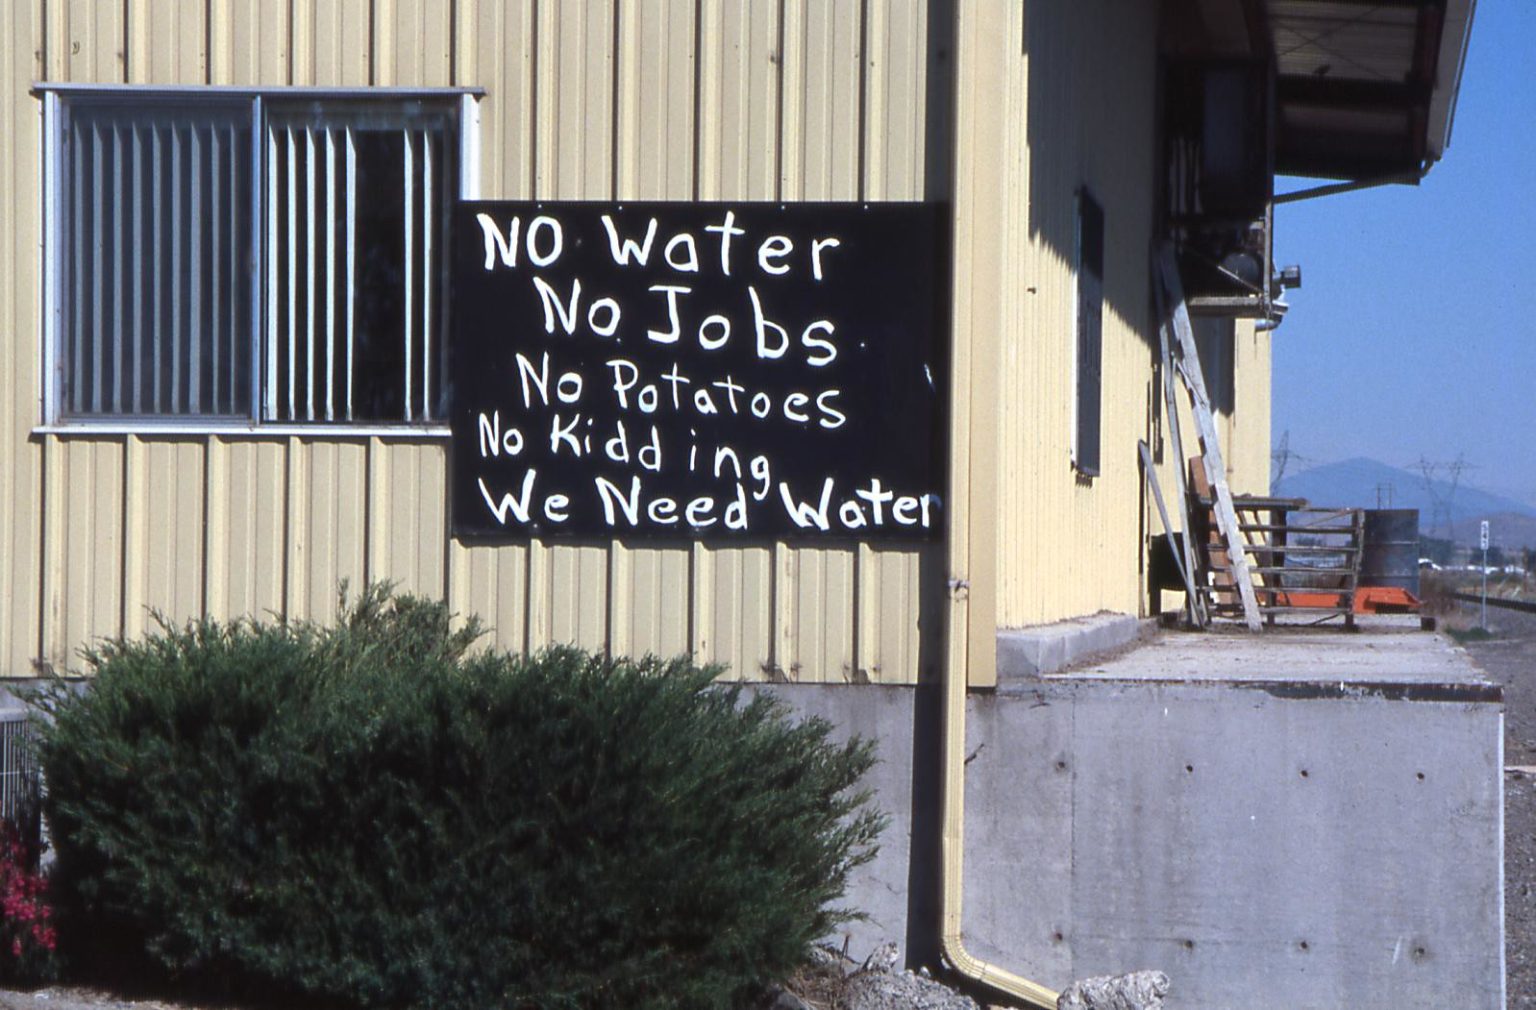 No Water
No Jobs
No Potatoes
No Kidding
We Need Water